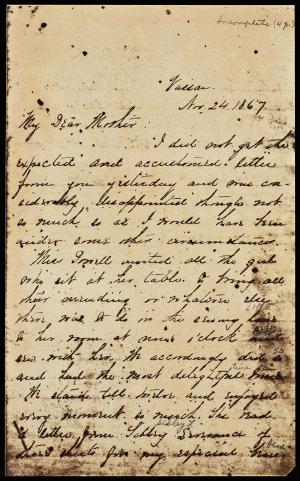 Incomplete (4 p.)
Vassar
Nov. 24. 1867.
My Dear Mother
I did not get the
expected and accustomed letter
from you yesterday and was con-
siderably disappointed though not
so much so as I would have been
under some other circumstances.
Miss Powell invited all the girls
who sit at her table, to bring all
their mending or whatever else
there was to do in the sewing line
to her room at nine o'clock and
sew with her. We accordingly did so
and had the most delightful time
We staid till twelve and enjoyed
every moment so much. She read
a letter from Libbey
there for my especial